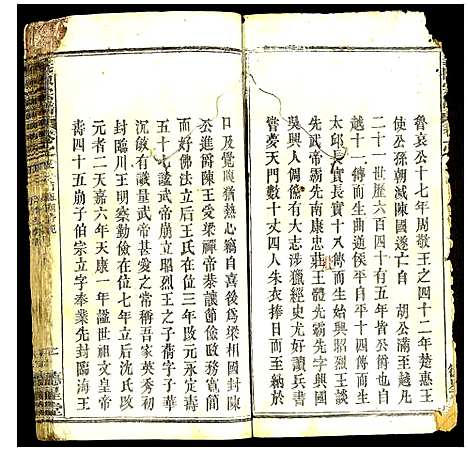 魯哀公十七年周敬王之四十二年楚惠王
使公孫朝滅陳國遂亡自 胡公滿至越凡
二十一世歷六百四十有五年皆公爵也自
越十一傳而生曲逆侯平自平十四傳而生
太邱長實長實十八傳而生始興昭烈王談
先武帝霸先南康忠莊王體先霸先字興國
吳興人倜儻有大志涉獵經史尤好讀兵書
嘗夢天門數十丈四人朱衣捧日而至納於
口及覺腹猶熱心竊自喜後為梁相國封陳
公進爵陳王受梁禪帝恭讓節儉政務寬簡
而好佛法立后王氏在位三年改元永定壽
五十七諡武帝崩立昭烈王之子蒨字子華
沉敏有識量武帝甚愛之常稱吾家英秀初
封臨川王明察勤儉在位七年立后沈氏改
元者二天嘉六年天康一年諡世祖文皇帝
壽四十五崩子伯宗立字奉業先封臨海王
德星堂